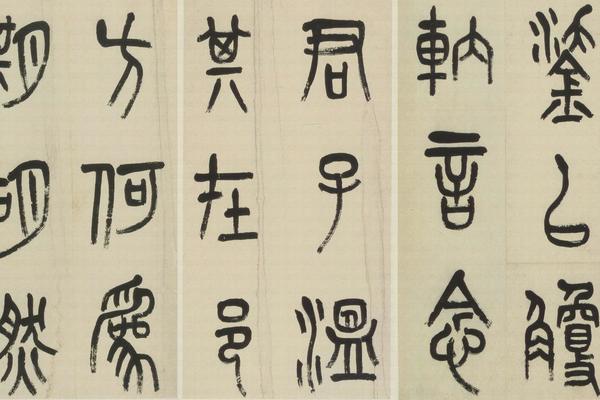 鋈以觼
軜言念
君子溫
其在邑
方何爲
期胡然